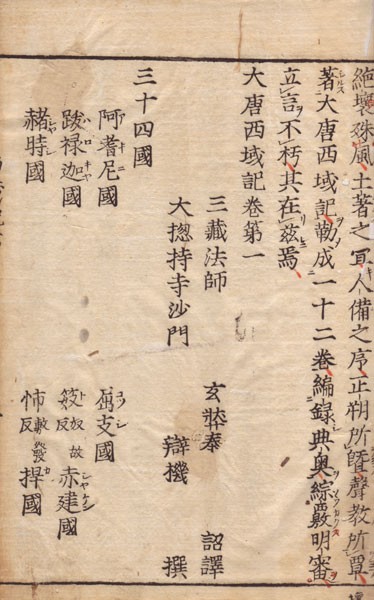 絶壤殊風土著之冝人備之序正朔所曁聲教所覃
著大唐西域記勒成一十二卷編錄典奧綜覈明審
立言不朽其在茲焉
大唐西域記卷第一
三藏法師 玄奘奉 詔譯
大揔持寺沙門 辯機 撰
三十四國
阿耆尼國 屈支國
跋禄迦國 笯奴故反赤建國
赭時國 㤄敷發反捍國